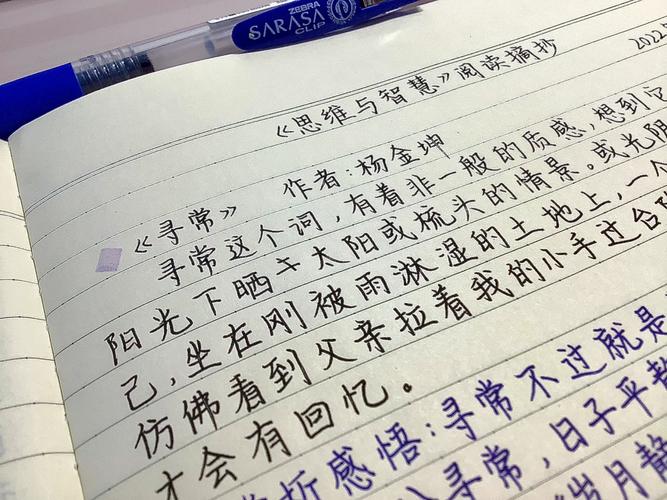 ZEBRA
SARASA
CLIP
《思维与智慧》阅读摘抄 2022
《寻常》 作者:杨金坤
寻常这个词,有着非一般的质感,想到
阳光下晒午太阳或梳头的情景。或光阴
己,坐在刚被雨淋湿的土地上,一个
仿佛看到父亲拉着我的小手过台
才会有回忆。
析感悟:寻常不过就是
寻常,日子平
岁月静